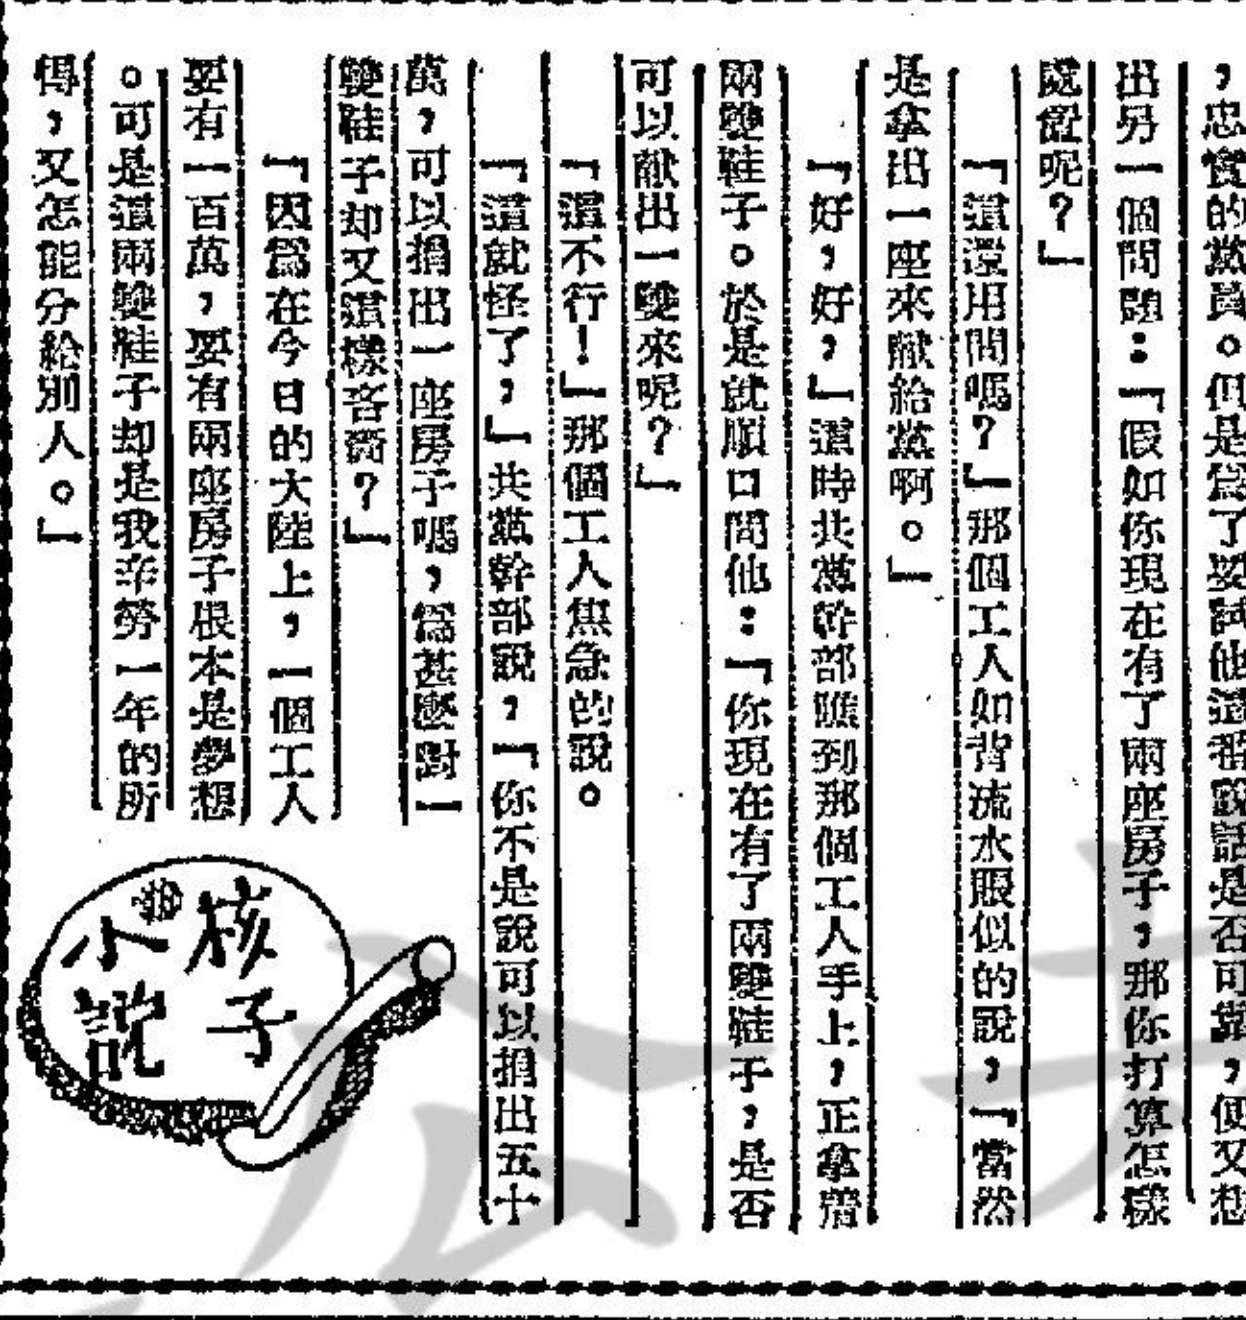 ，忠實的黨員。但是爲了要試他這番說話是否可靠，便又想
出另一個問題：「假如你現在有了兩座房子，那你打算怎樣
處置呢？」
「這還用問嗎？」那個工人如背流水賬似的說，「當然
是拿出一座來獻給黨啊。」
「好，好，」這時共黨幹部瞧到那個工人手上，正拿着
兩雙鞋子。於是就順口問他：「你現在有了兩雙鞋子，是否
可以獻出一雙來呢？」
「這不行！」那個工人焦急的說。
「這就怪了，」共黨幹部說，「你不是說可以捐出五十
萬，可以捐出一座房子嗎，爲甚麽對一
雙鞋子却又這樣吝嗇？」
「因爲在今日的大陸上，一個工人
要有一百萬，要有兩座房子根本是夢想
。可是這兩雙鞋子却是我辛勞一年的所
得，又怎能分給別人。」
核子
小說